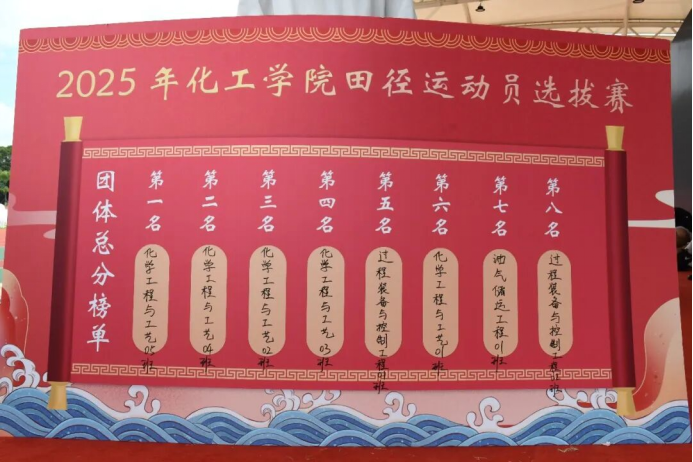 2025年化工学院田径运动员选拔赛
团体总分榜单
第一名
化学工程与工艺05班
第二名
化学工程与工艺04班
第三名
化学工程与工艺02班
第四名
化学工程与工艺03班
第五名
过程装备与控制工程01班
第六名
化学工程与工艺01班
第七名
油气储运工程01班
第八名
过程装备与控制工程